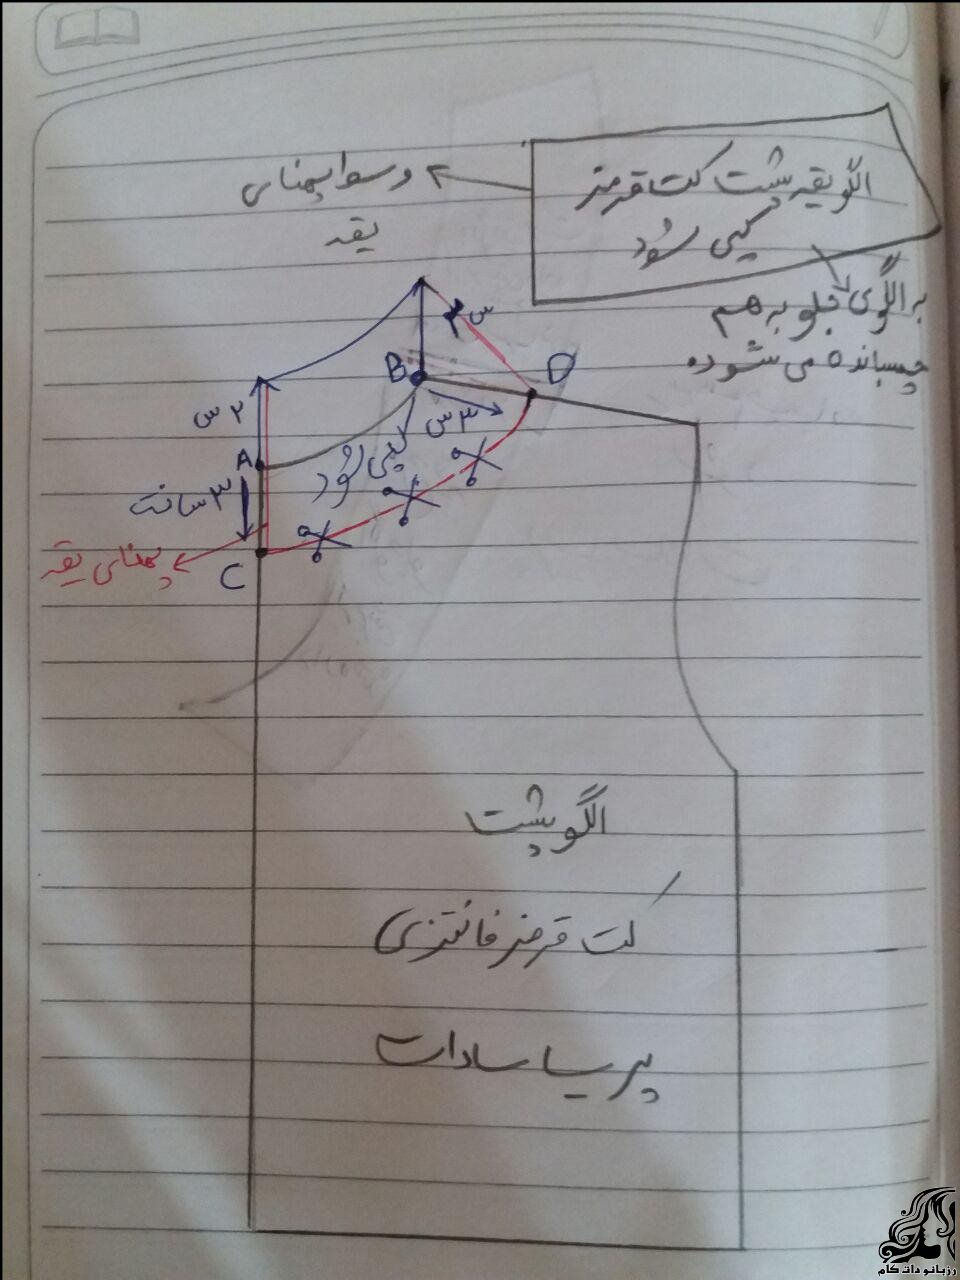 الگو یقه پشت کت قرمز
کپی شود
۲ و سوا پهنای
یقه
بر الگوی جلو به هم
چسبانده می شوده
۳ س
B
D
۲ س
۳ س
A
کپی شود
۳ سانت
پهنای یقه
C
الگو پشت
کت قرمز فانتزی
پریسا سادات
رزبانو دات کام